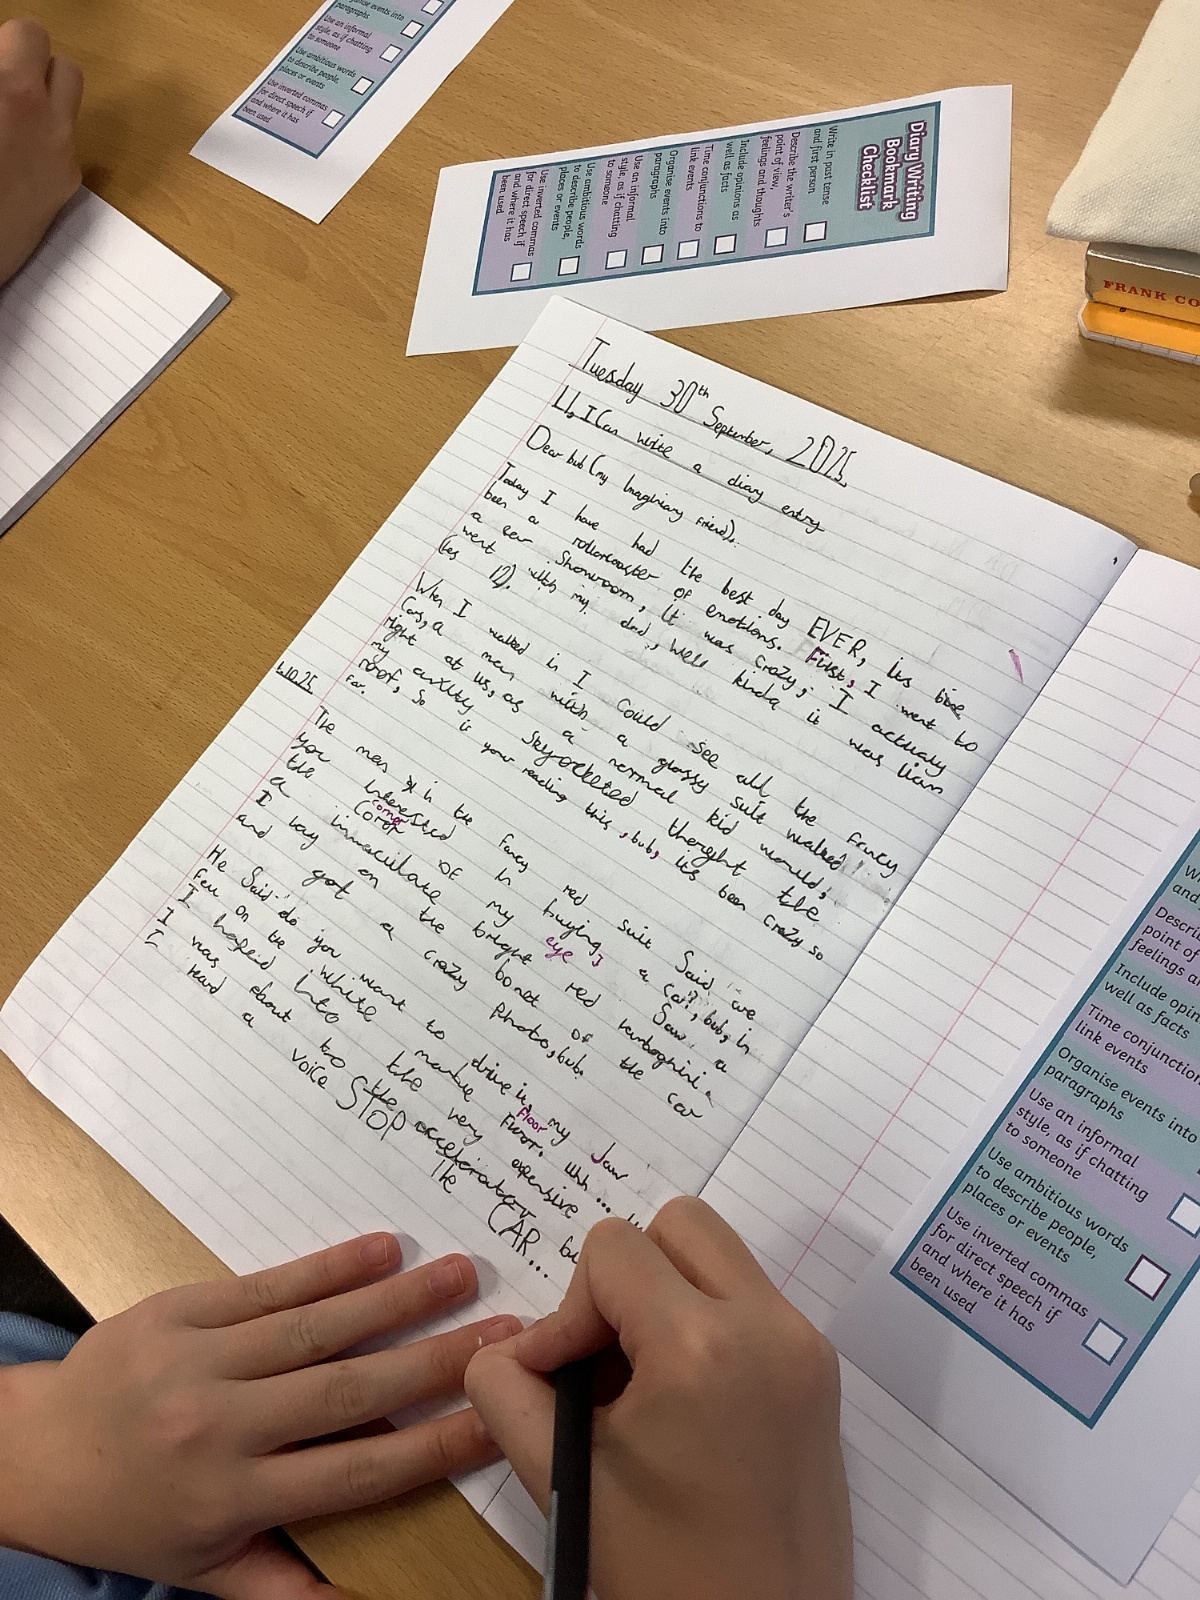 Tuesday 30th September, 2025.
LI, I Can write a diary entry
Dear bub (my Imaginary Friend),
Today I have had the best day EVER, its
been a rollorcoaster of emotions. First, I went to
a car Showroom, it was crazy; I actualy
went with my dad, well kinda it was
(es 12).
When I walked in I Could see all the
Cars, a man with a glossy suit walked
right at us, as a normal kid would,
my anxity skyrocketed the
roof, so is your reading this, bub, its been crazy so
far.
1.10.25
The man in the fancy red suit Said, are
you Interested In buying a car?, bub, in
the corner Coror OF my eye, I Saw a
a immaculate bright red
I lay on the bonot of the car
and got a crazy Photo, bub.
He Said do you want to drive it, my Jaw
fell on the white floor Floor. uhh...
I into the very expensive
I was about to the accelerator
I heard a voice STOP the CAR...
Diary Writing
Bookmark
Checklist
Write in past tense
and first person
Describe the writer's
point of view,
feelings and thoughts
Include opinions as
well as facts
Time conjunctions to
link events
Organise events into
paragraphs
Use an informal
style, as if chatting
to someone
Use ambitious words
to describe people,
places or events
Use inverted commas
for direct speech if
and where it has
been used
Organise events into
paragraphs
Use an informal
style, as if chatting
to someone
Use ambitious words
to describe people,
places or events
Use inverted commas
for direct speech if
and where it has
been used
FRANK CO
point of
feelings a
Include opin
well as facts
Time conjunction
link events
Organise events into
paragraphs
Use an informal
style, as if chatting
to someone
Use ambitious words
to describe people,
places or events
Use inverted commas
for direct speech if
and where it has
been used